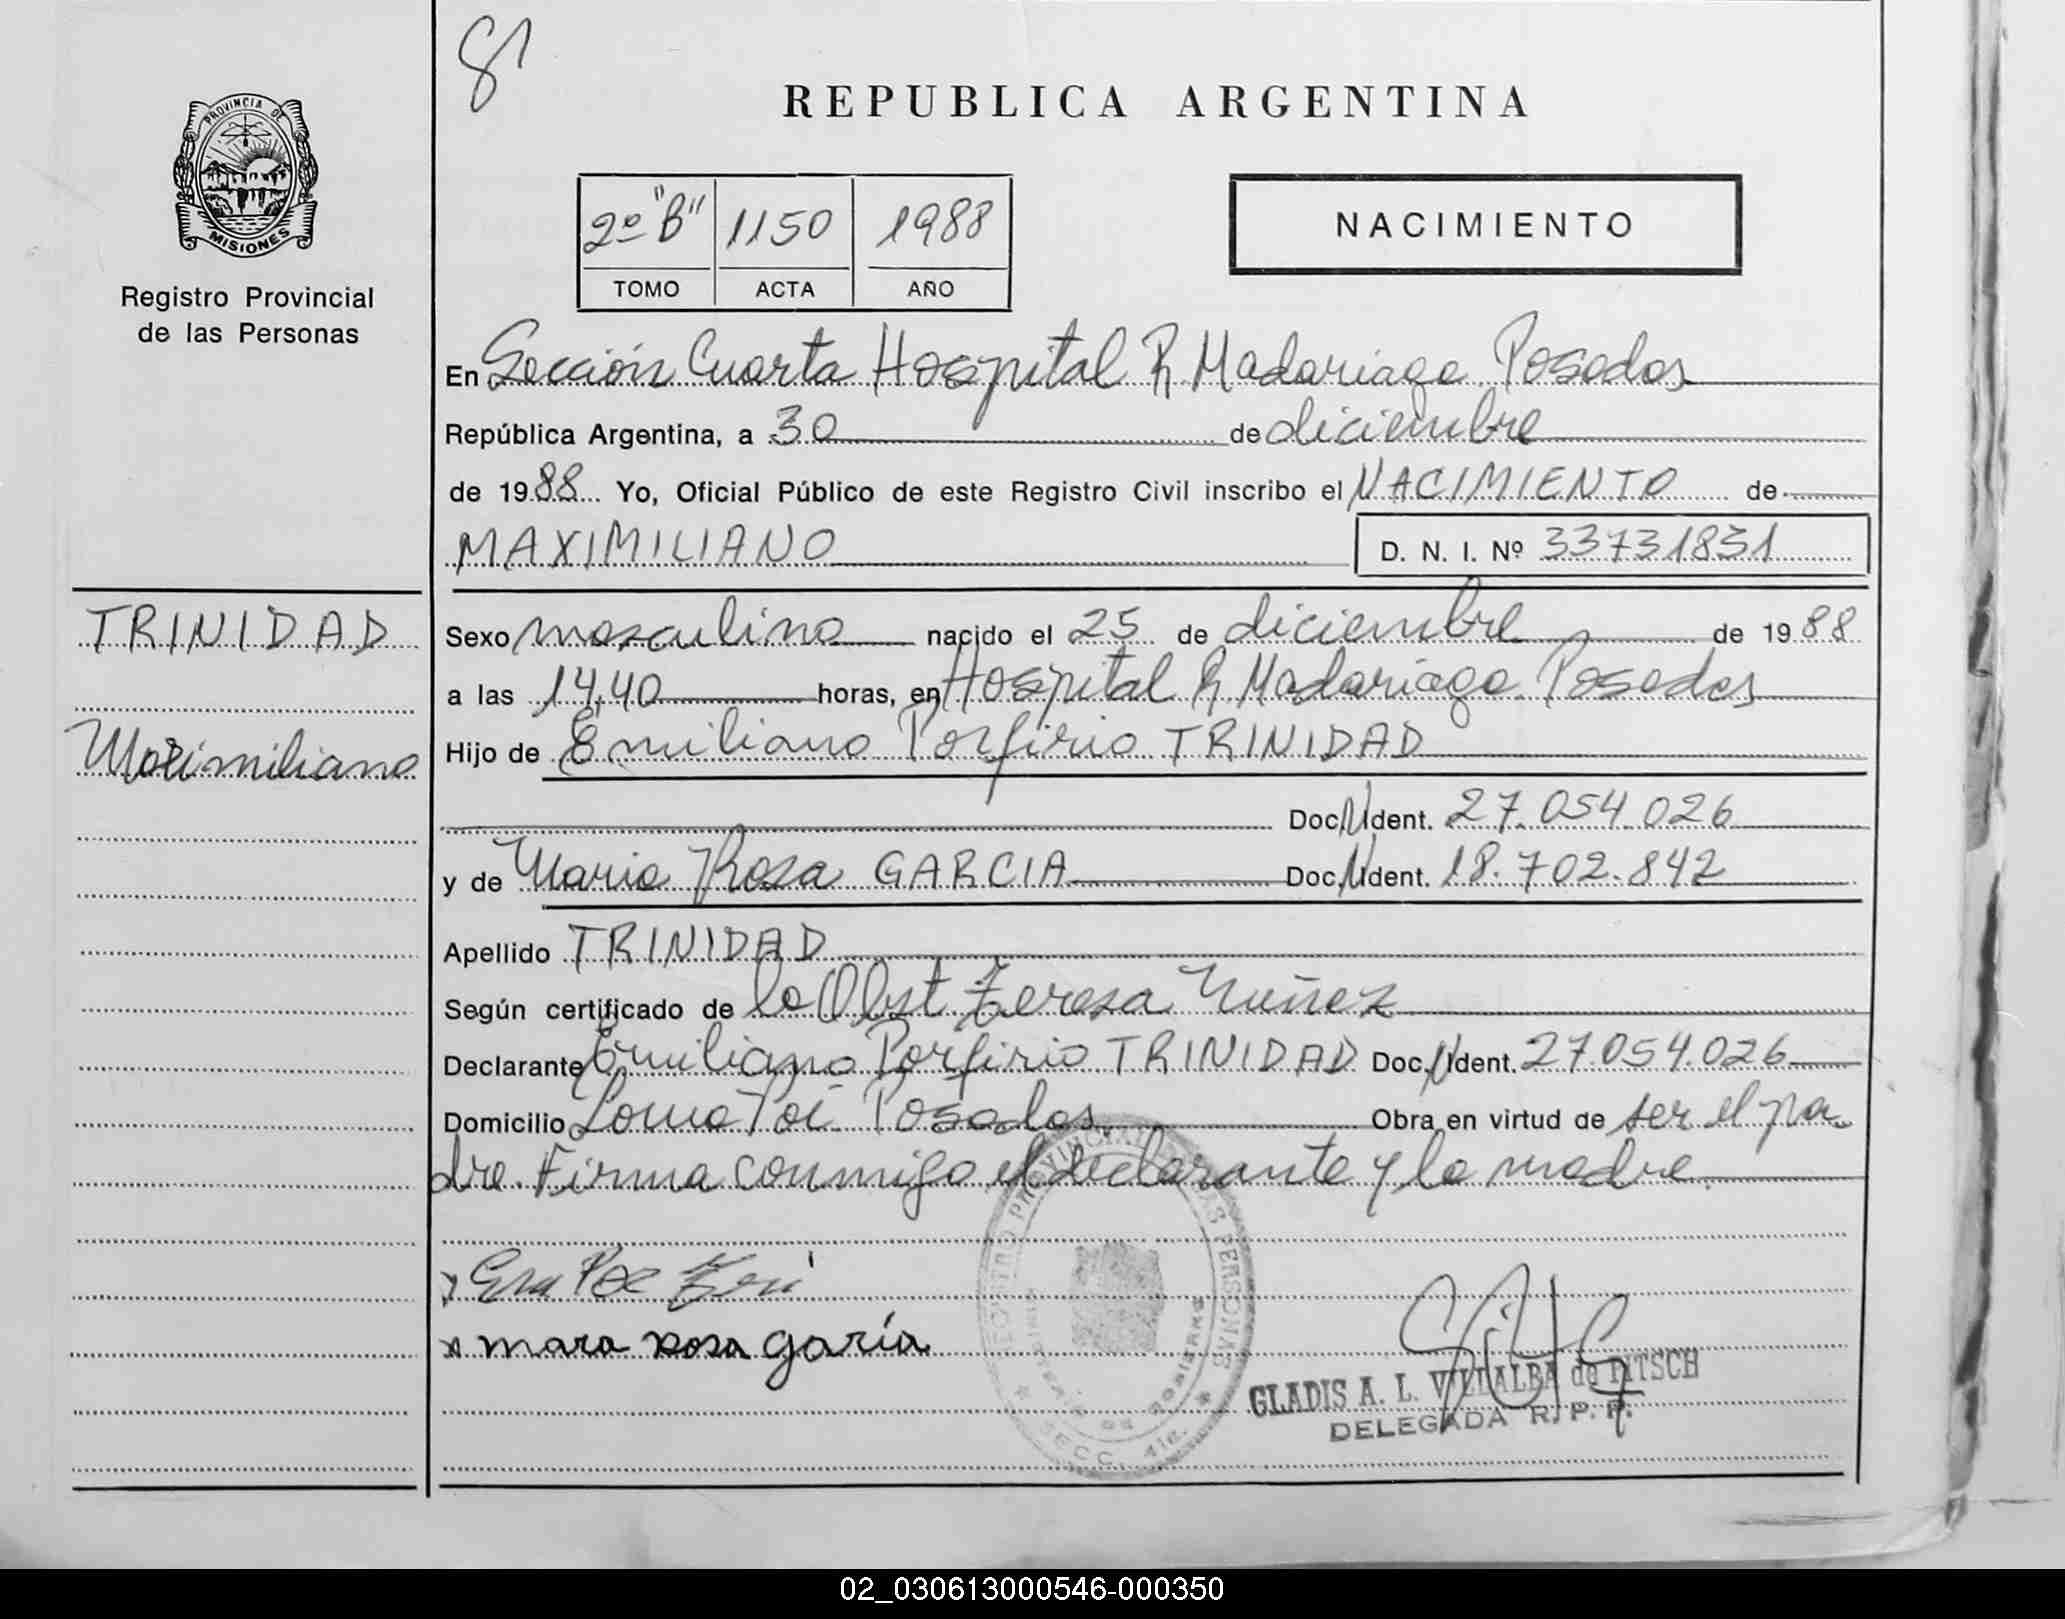 81
PROVINCIA DE
MISIONES
Registro Provincial
de las Personas
REPUBLICA ARGENTINA
2º "B" 1150 1988
TOMO ACTA AÑO
NACIMIENTO
En Sección Cuarta Hospital R Madariaga Posadas
República Argentina, a 30 de diciembre
de 1988 Yo, Oficial Público de este Registro Civil inscribo el NACIMIENTO de
MAXIMILIANO D. N. I. Nº 33731831
TRINIDAD
Maximiliano
Sexo masculino nacido el 25 de diciembre de 1988
a las 14,40 horas, en Hospital R Madariaga Posadas
Hijo de Emiliano Porfirio TRINIDAD
Doc. N Ident. 27.054.026
y de Maria Rosa GARCIA Doc. N Ident. 18.702.842
Apellido TRINIDAD
Según certificado de la Obst Teresa Nuñez
Declarante Emiliano Porfirio TRINIDAD Doc. N Ident. 27.054.026
Domicilio Loma Poi Posadas Obra en virtud de ser el pa-
dre. Firma conmigo el declarante y la madre.
x mara rosa garía
REGISTRO PROVINCIAL DE LAS PERSONAS
SECC. 4ta.
GLADIS A. L. VILLALBA de PITSCH
DELEGADA R. P. P.
02_030613000546-000350